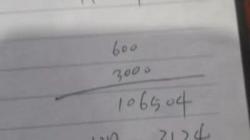 600
3000
106504
3124